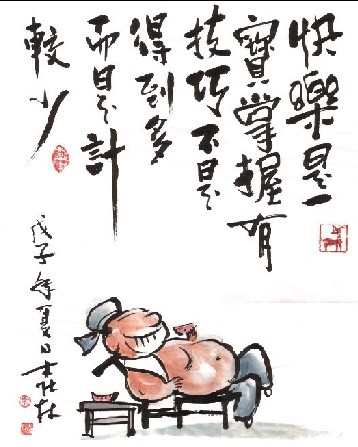 快樂是一
寶掌握有
技巧不是
得到多
而是計
較少
戊子年夏日